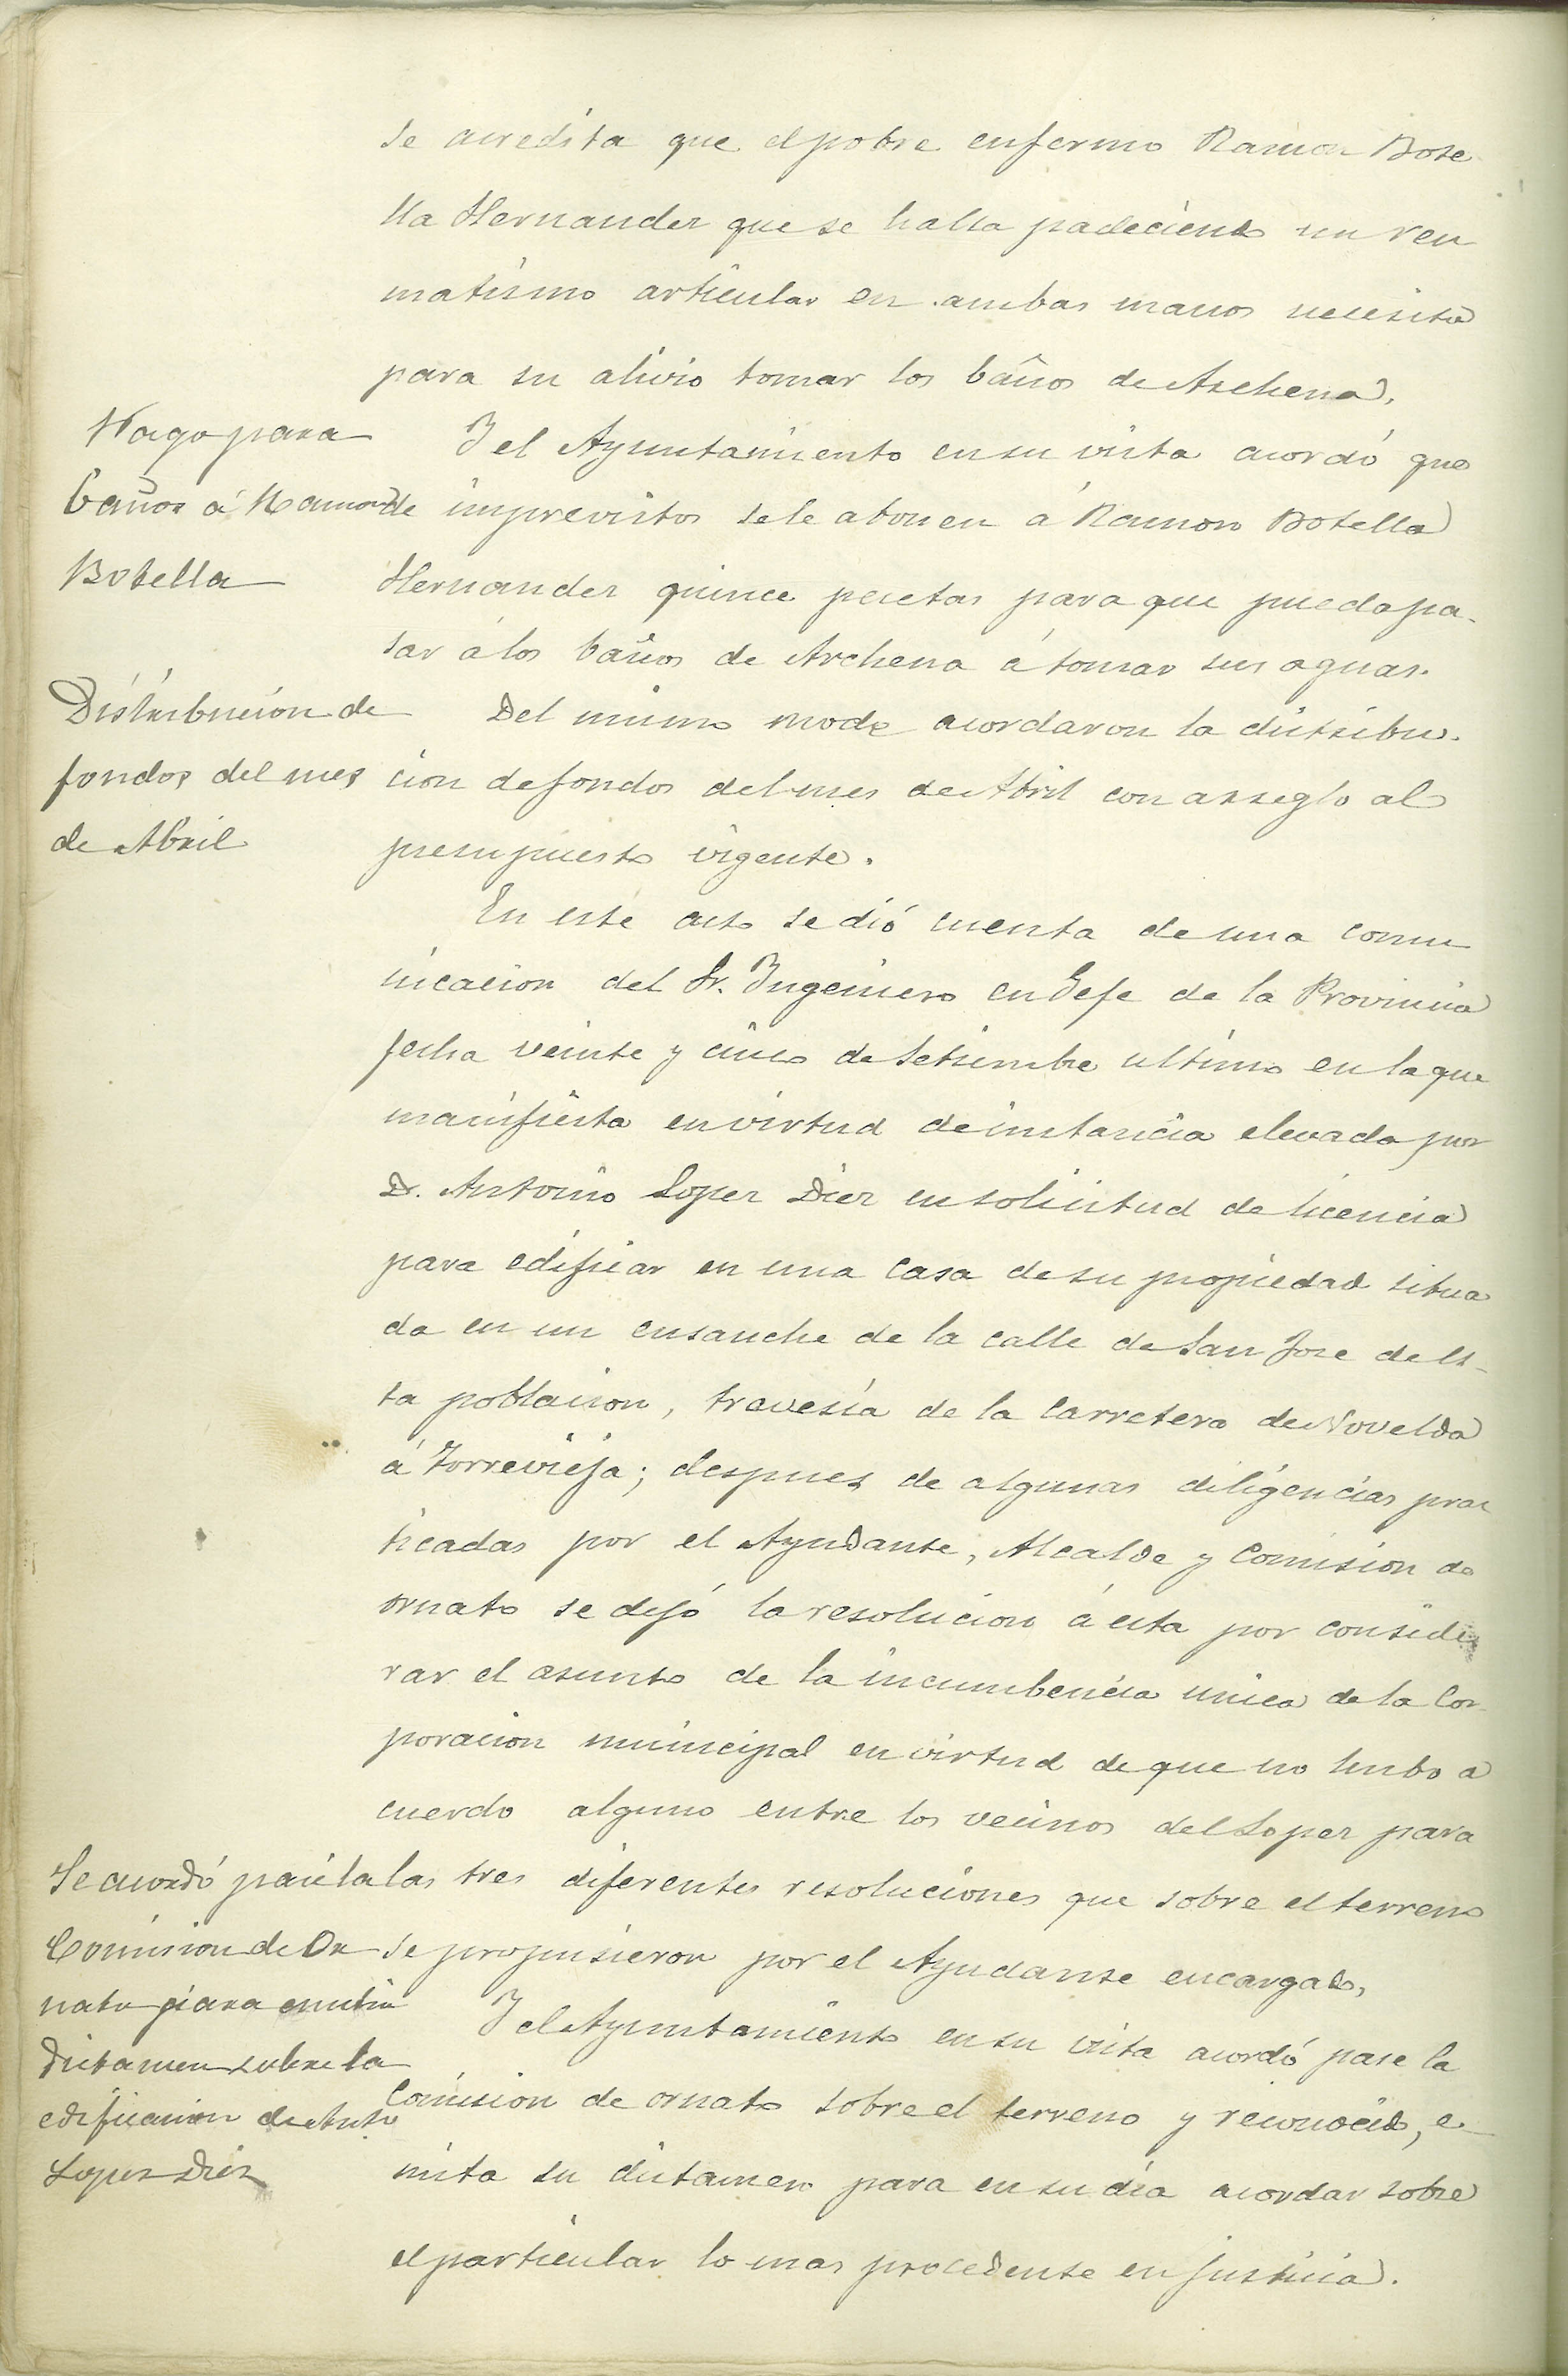 se acredita que el pobre enfermo Ramon Bote
lla Hernandez que se halla padeciendo un reu
matismo articular en ambas manos necesita
para su alivio tomar los baños de Archena.
Pago para
baños á Ramon
Botella
Y el Ayuntamiento en su vista acordó que
de imprevistos se le abonen á Ramon Botella
Hernandez quince pesetas para que pueda pa-
sar á los baños de Archena á tomar sus aguas.
Distribucion de
fondos del mes
de Abril
Del mismo modo acordaron la distribu-
cion de fondos del mes de Abril con arreglo al
presupuesto vigente.
En este acto se dió cuenta de una comu
nicacion del Sr. Ingeniero en Gefe de la Provincia
fecha veinte y cinco de Setiembre ultimo en la que
manifiesta en virtud de instancia elevada por
D. Antonio Lopez Diez en solicitud de licencia
para edificar en una casa de su propiedad situa
da en un ensanche de la calle de San Jose de es-
ta poblacion, travesía de la carretera de Novelda
á Torrevieja; despues de algunas diligencias prac
ticadas por el Ayudante, Alcalde y Comision de
ornato se dejó la resolucion á esta por conside
rar el asunto de la incumbencia unica de la Cor-
poracion municipal en virtud de que no hubo a
cuerdo alguno entre los vecinos del Lopez para
las tres diferentes resoluciones que sobre el terreno
se propusieron por el Ayudante encargado,
Se acordó pase la
Comision de Or
nato para emitir
dictamen sobre la
edificacion de Antº
Lopez Diez
Y el Ayuntamiento en su vista acordó pase la
Comision de ornato sobre el terreno y reconocido, e-
mita su dictamen para en su dia acordar sobre
el particular lo mas procedente en justicia.